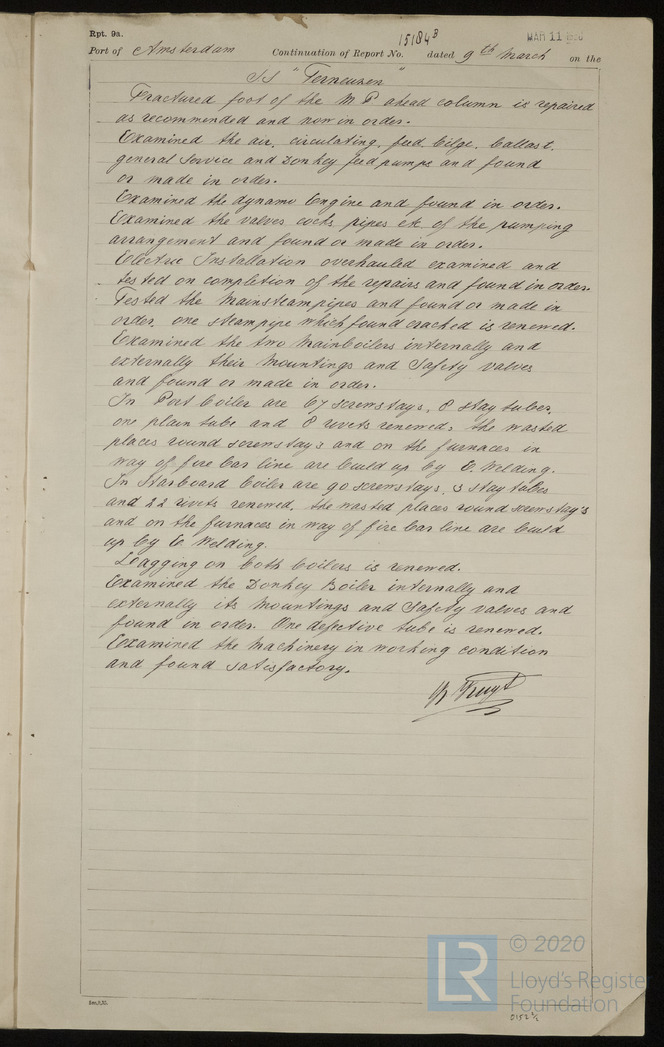 Rpt. 9a.
Port of Amsterdam Continuation of Report No. 15184B dated 9th March on the
MAR 11
SS "Terneuzen"
Fractured foot of the M P ahead column is repaired
as recommended and now in order.
Examined the air, circulating, feed bilge, ballast,
general service and Donkey feed pumps and found
or made in order.
Examined the dynamo Engine and found in order.
Examined the valves cocks pipes etc of the pumping
arrangement and found or made in order.
Electric Installation overhauled examined and
tested on completion of the repairs and found in order.
Tested the Mainsteampipes and found or made in
order, one steampipe which found cracked is renewed.
Examined the two Mainboilers internally and
externally their Mountings and Safety valves
and found or made in order.
In Port boiler are 67 screwstays, 8 stay tubes,
one plain tube and 8 rivets renewed, the wasted
places round screwstays and on the furnaces in
way of fire bar line are build up by E. Welding.
In Starboard boiler are 90 screwstays, 3 stay tubes
and 22 rivets renewed, the wasted places round screwstays
and on the furnaces in way of fire bar line are build
up by E Welding.
Lagging on both boilers is renewed.
Examined the Donkey Boiler internally and
externally its Mountings and Safety valves and
found in order. One defective tube is renewed.
Examined the Machinery in working condition
and found satisfactory.
© 2020
LR
Lloyd's Register
Foundation
0152 2/2